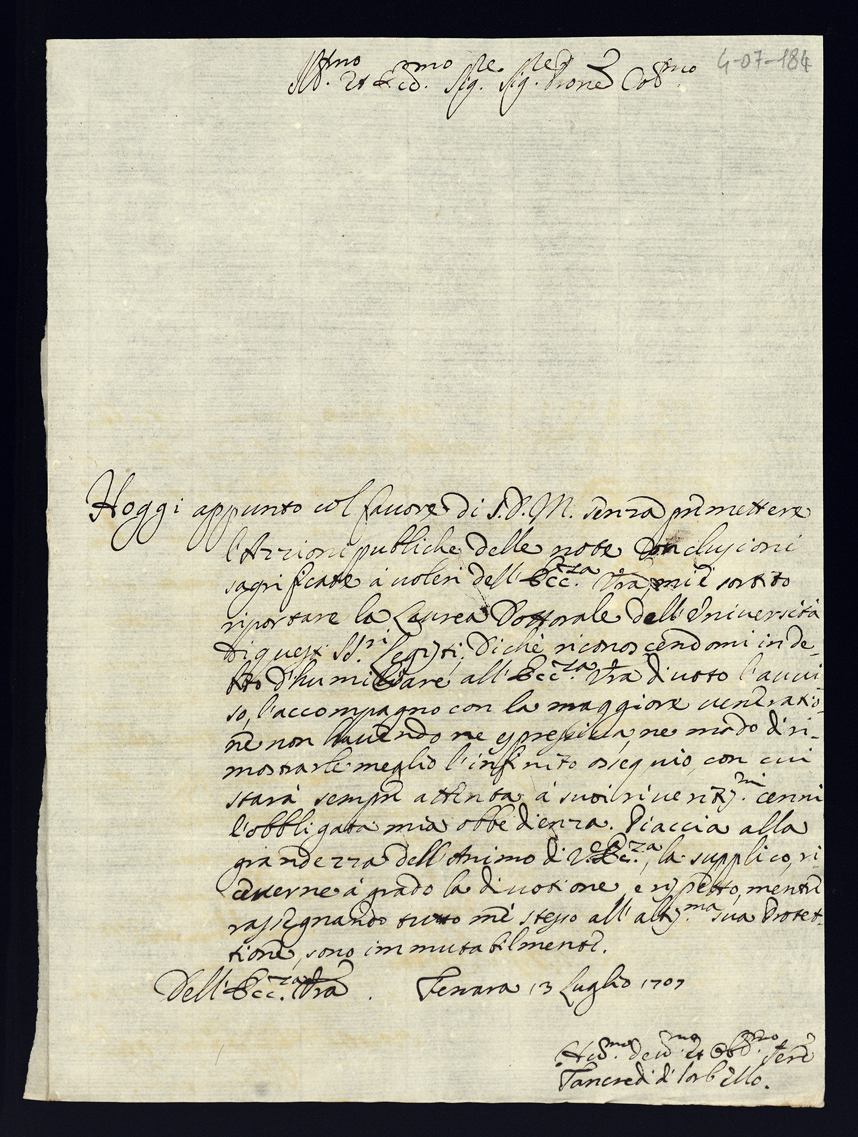 Ill.mo et Ecc.mo Sig.re Sig.re Prone Col.mo
4-07-184
Hoggi appunto col fauore di S.D.M. senza premettere
l'Azzioni publiche delle note Conclusioni
sagrificate á uoleri dell'Ecc.za Vra mi é sortito
riportare la Laurea Dottorale dell'Università
di quest SS.ri Legisti. Di ché riconoscendomi inde-
bito d'humiliare all'Ecc.za Vra diuoto l'auui-
so, l'accompagno con la maggiore ueneratio-
ne non hauendo ne espressiua, ne modo di ri-
mostrarle meglio l'infinito ossequio, con cui
starà sempre attenta á suoi riueritiss.mi cenni
l'obbligata mia obbedienza. Piaccia alla
grandezza dell'Animo di V.Ecc.za, la supplico, ri-
ceuerne á grado la diuotione, e rispetto, mentre
rassegnando tutto mé stesso all'altiss.ma sua Protet-
tione, sono immutabilmente.
Dell'Ecc.za Vra. Ferrara 13 Luglio 1707
Hum.mo deu.mo et Obb.mo Sere
Tancredi di